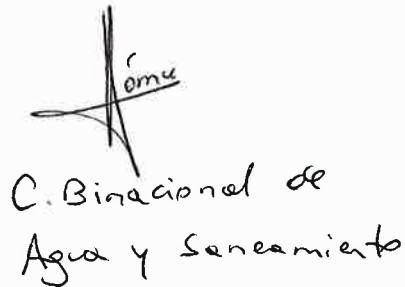 C. Binacional de
Agua y Saneamiento